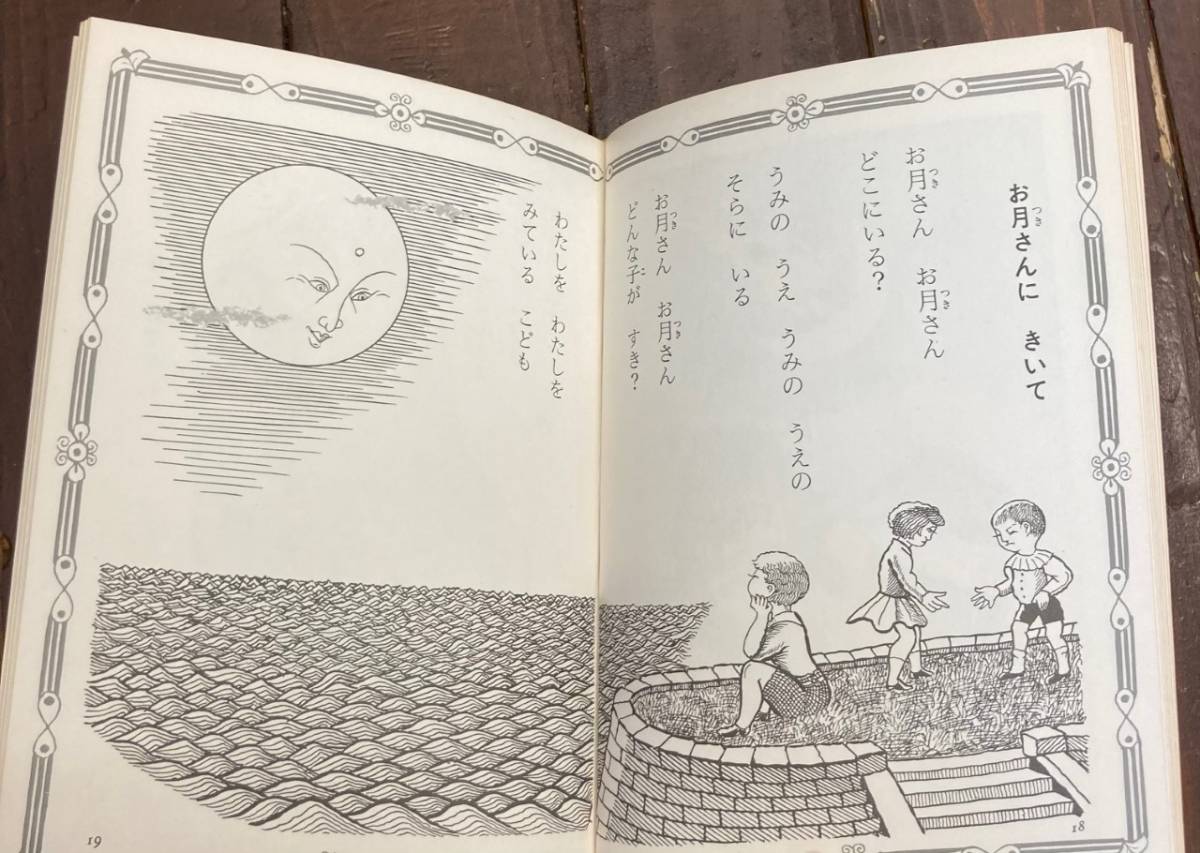 お月さんに きいて
お月さん お月さん
どこにいる?
うみの うえ うみの うえの
そらに いる
お月さん お月さん
どんな子が すき?
わたしを わたしを
みている こども
18
19